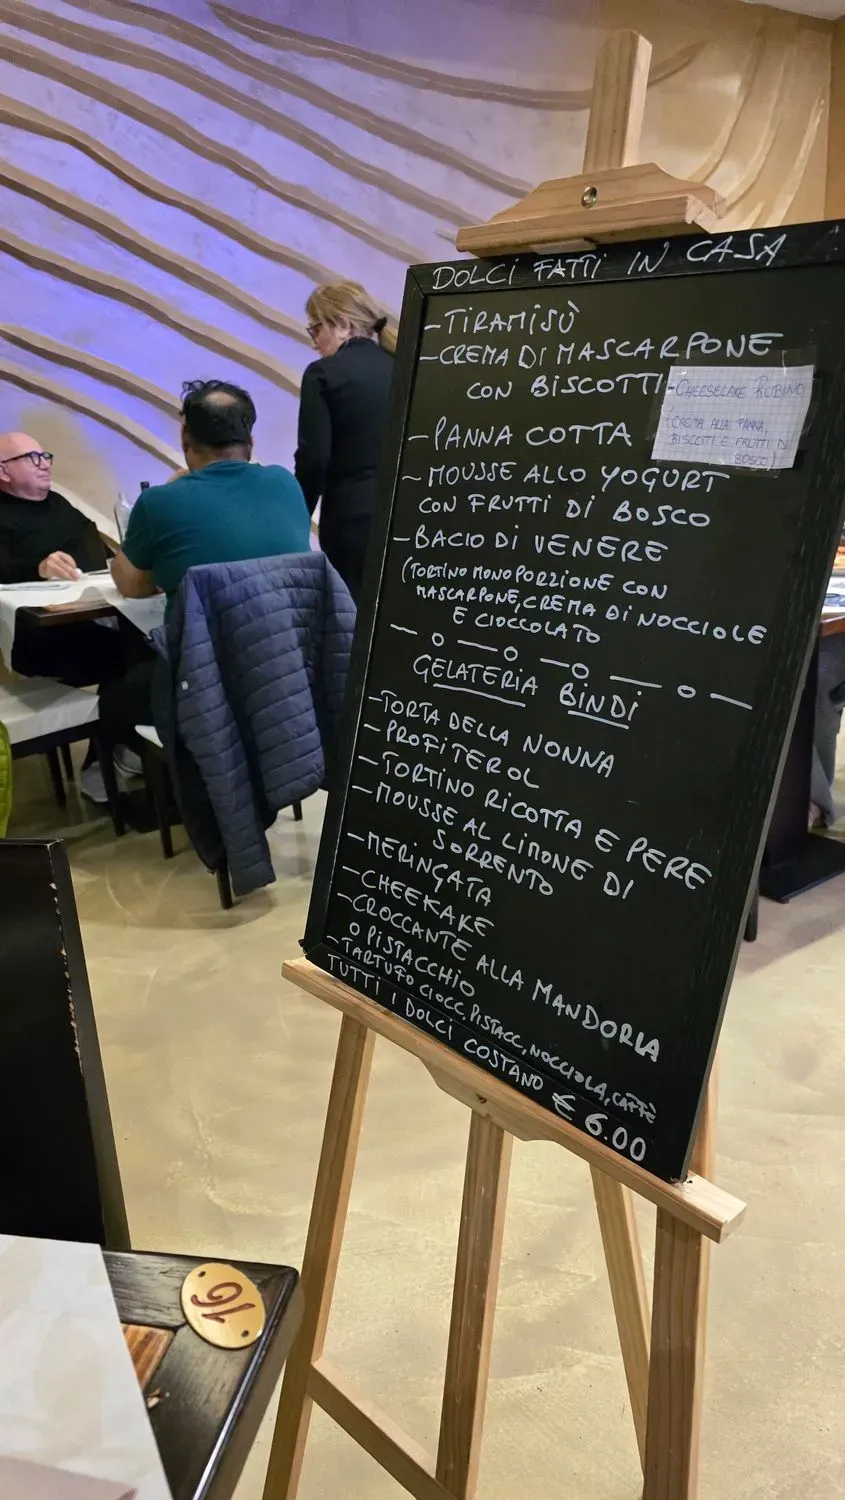 DOLCI FATTI IN CASA
-TIRAMISÙ
-CREMA DI MASCARPONE
CON BISCOTTI
-CHEESECAKE RUBINO
(CREMA ALLA PANNA,
BISCOTTI E FRUTTI DI
BOSCO)
-PANNA COTTA
-MOUSSE ALLO YOGURT
CON FRUTTI DI BOSCO
-BACIO DI VENERE
(TORTINO MONOPORZIONE CON
MASCARPONE, CREMA DI NOCCIOLE
E CIOCCOLATO
GELATERIA BINDI
-TORTA DELLA NONNA
-PROFITEROL
-TORTINO RICOTTA E PERE
-MOUSSE AL LIMONE DI
SORRENTO
-MERINGATA
-CHEEKAKE
-CROCCANTE ALLA MANDORLA
O PISTACCHIO
-TARTUFO CIOCC, PISTACC, NOCCIOLA, CAFFÈ
TUTTI I DOLCI COSTANO € 6.00
16